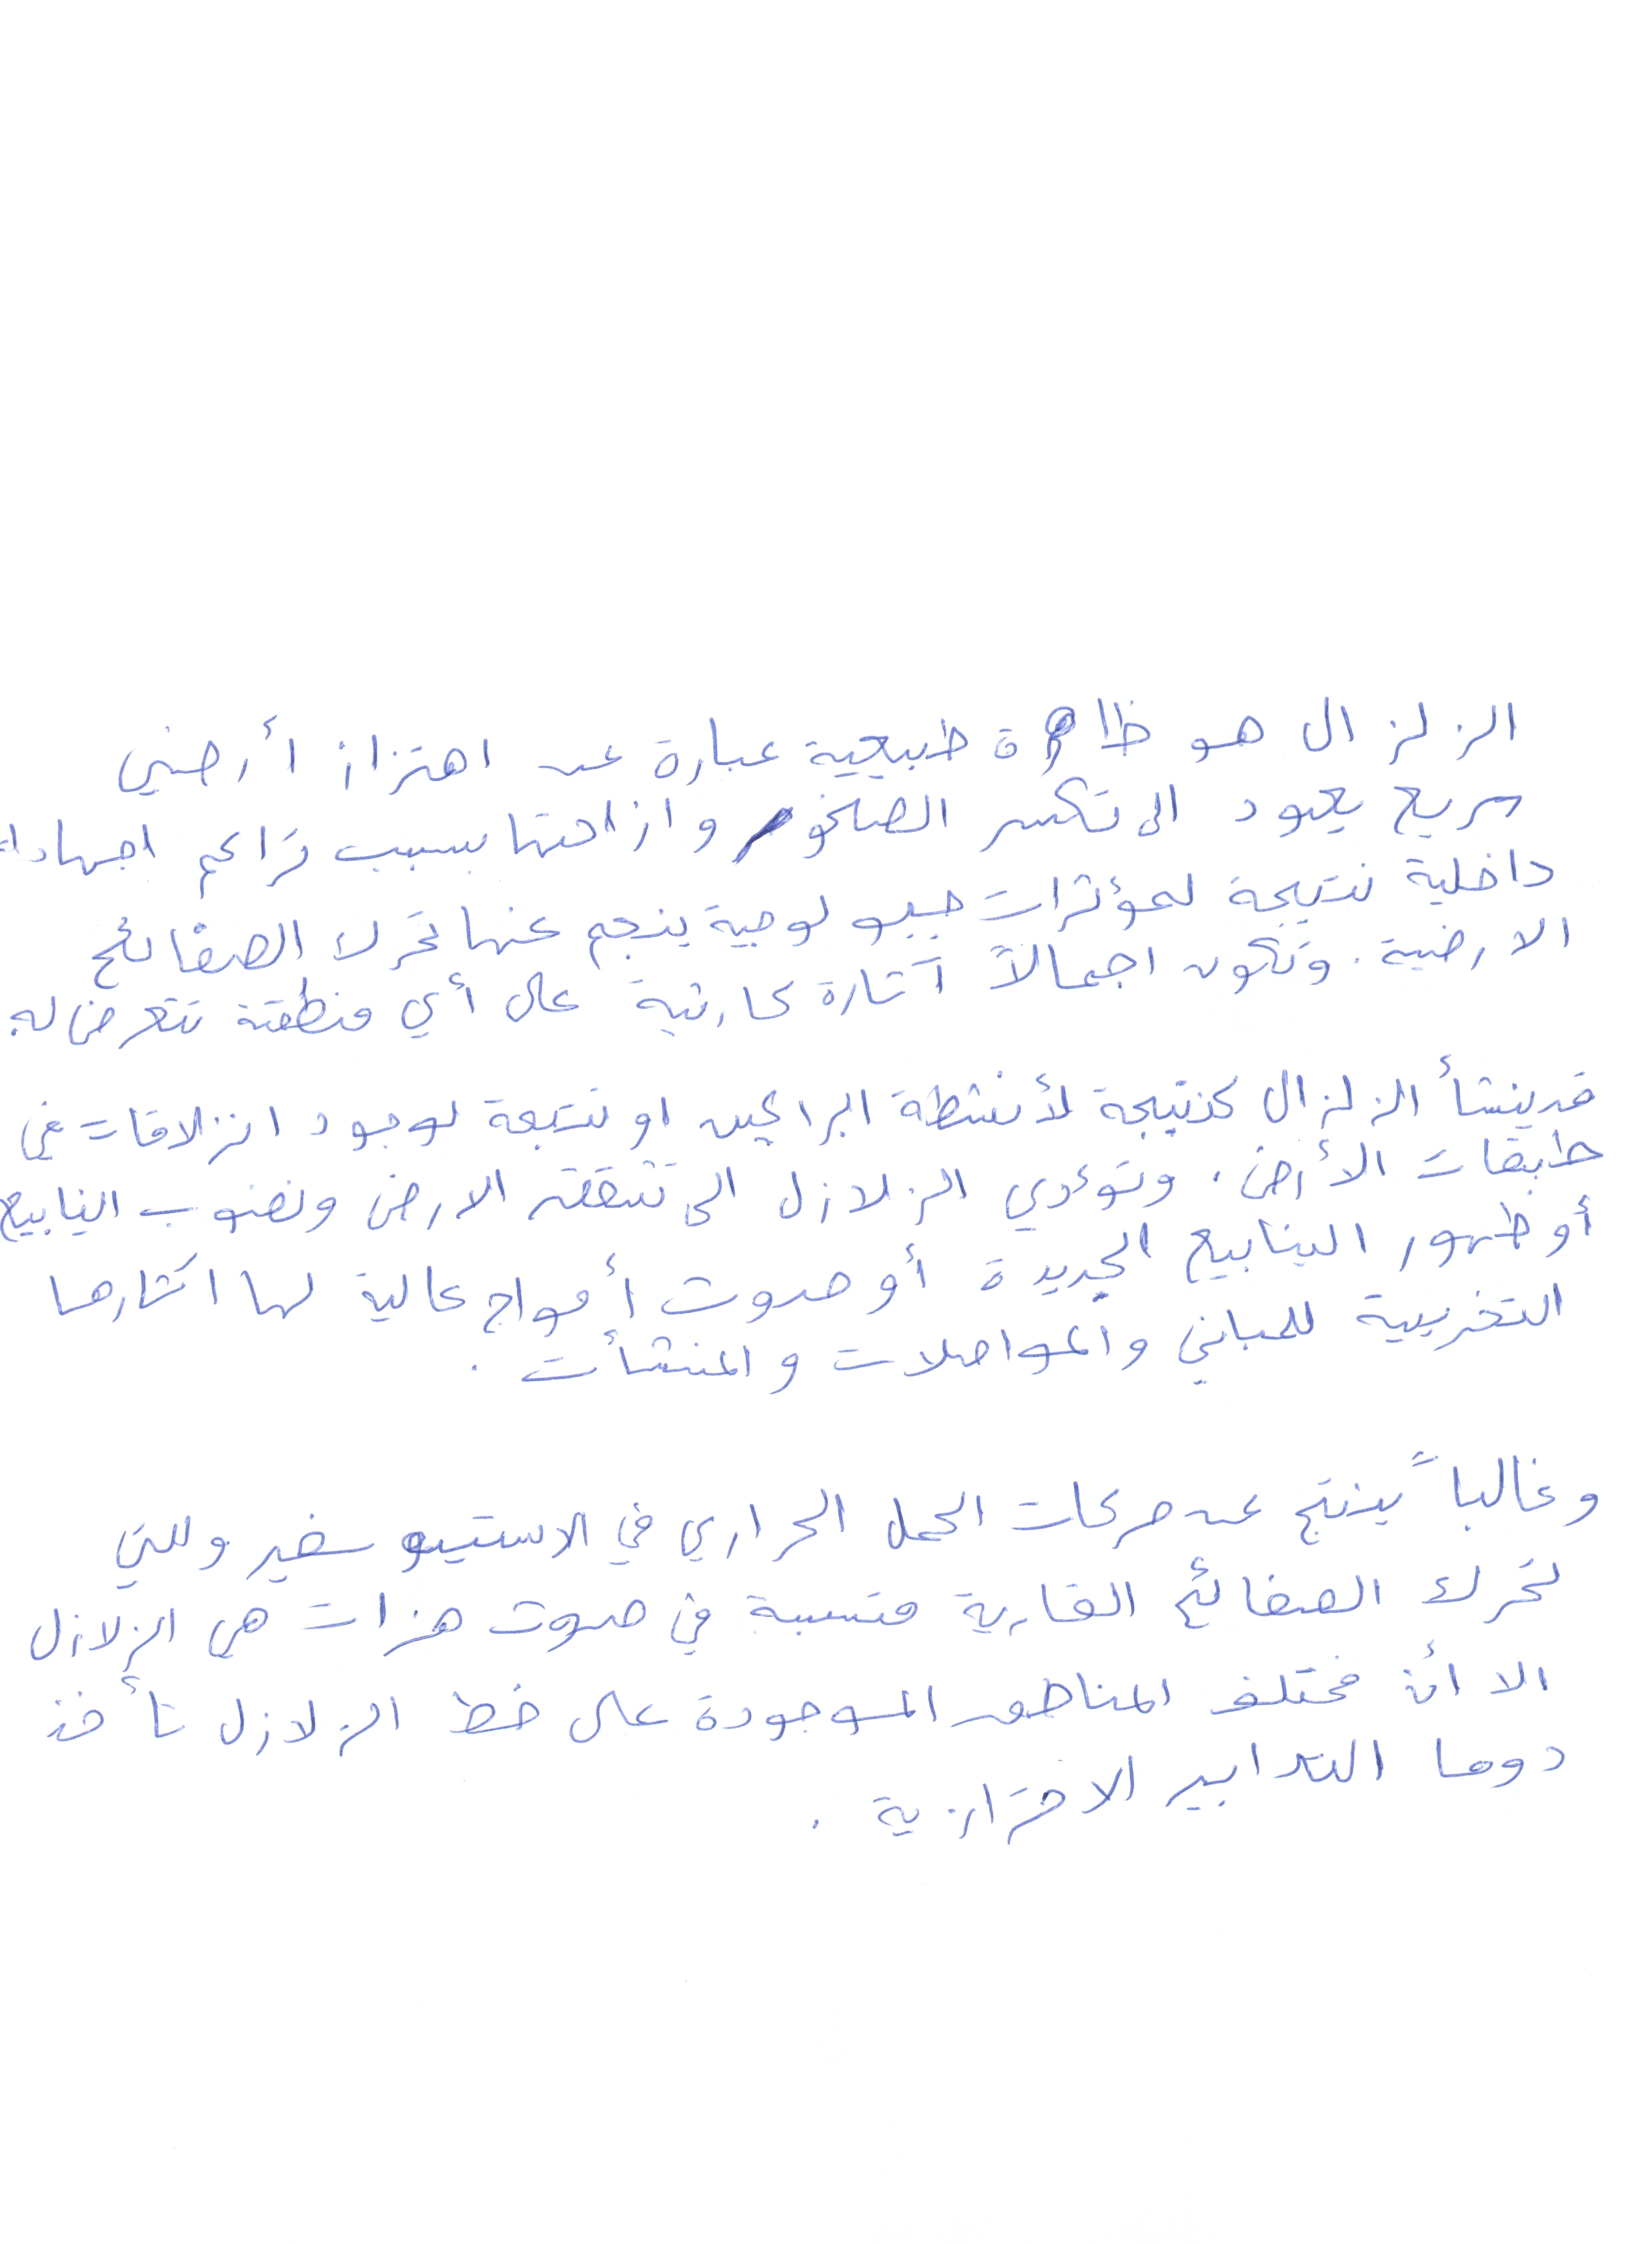 الزلزال هو ظاهرة طبيعية عبارة عن اهتزاز أرضي
سريع يعود الى تكسر الصخور وازاحتها بسبب تراكم اجهادات
داخلية نتيجة لمؤثرات جيولوجية ينجم عنها تحرك الصفائح
الارضية. وتكون اجمالاً آثاره كارثية على أي منطقة تتعرض له.
قد ينشأ الزلزال كنتيجة لأنشطة البراكين او نتيجة لوجود انزلاقات في
طبقات الأرض. وتؤدي الزلازل الى تشقق الارض ونضوب الينابيع
أو ظهور الينابيع الجديدة أو حدوث أمواج عالية لها اثارها
التخريبية للمباني والمواصلات والمنشأت.
وغالباً ينتج عن حركات الحمل الحراري في الاستينوسفير والتي
تحرك الصفائح القارية متسببة في حدوث هزات هي الزلازل
الا أن مختلف المناطق الموجودة على خط الزلازل تأخذ
دوما التدابير الاحترازية.